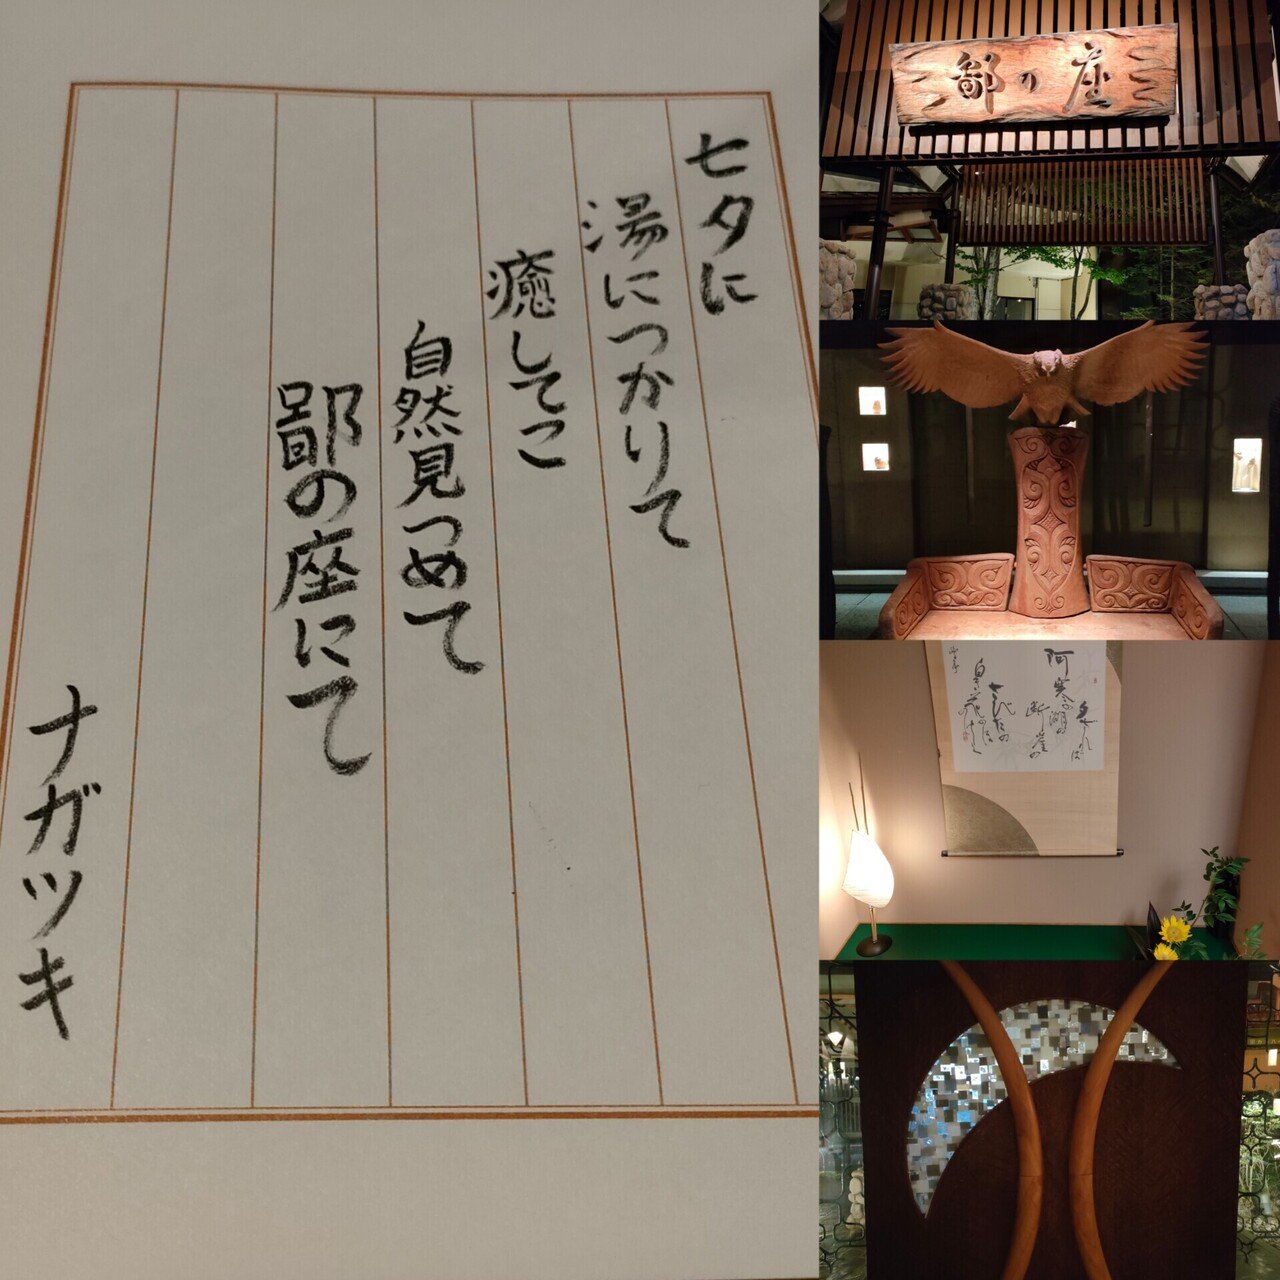 七夕に
湯につかりて
癒してこ
自然見つめて
鄙の座にて
ナガツキ
鄙の座
阿寒の湖の
断崖の